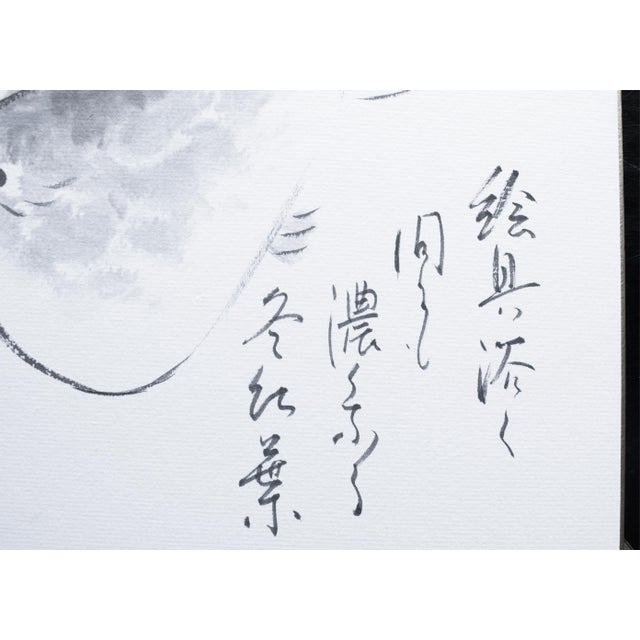 絵具溶く
間にも
濃くなる
冬紅葉